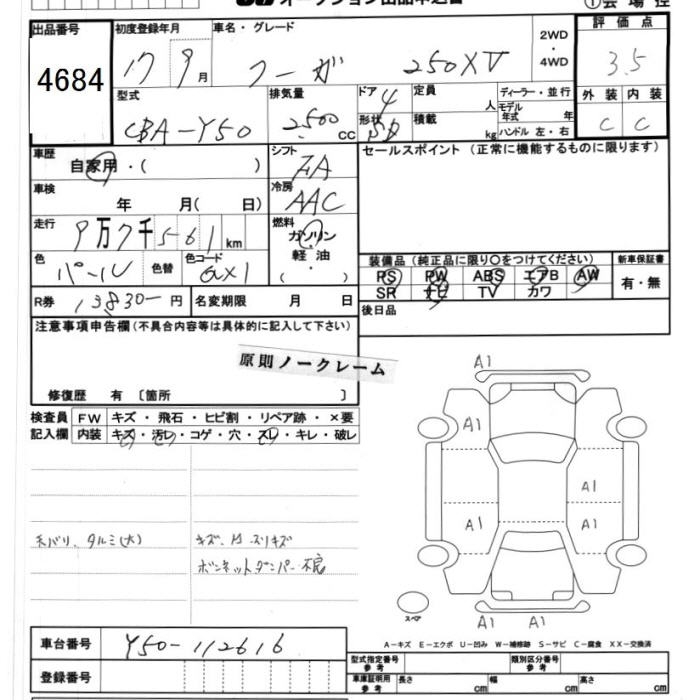 オークション出品申込書
①会場控
出品番号 4684
初度登録年月 17 9月
車名・グレード フーガ 250XV
2WD・4WD
評価点 3.5
型式 CBA-Y50
排気量 2500 CC
ドア 4
形状 SD
定員 人
積載 kg
ディーラー・並行
モデル年式 年
ハンドル 左・右
外装 C
内装 C
車歴 自家用・( )
シフト FA
セールスポイント (正常に機能するものに限ります)
車検 年 月( 日)
冷房 AAC
走行 9万7千561km
燃料 ガソリン・軽油・( )
色 パール
色替
色コード QX1
装備品(純正品に限り○をつけてください)
PS PW ABS エアB AW
SR ナビ TV カワ
新車保証書 有・無
R券 13830-円
名変期限 月 日
後日品
注意事項申告欄(不具合内容等は具体的に記入して下さい)
原則ノークレーム
修復歴 有 〔箇所 〕
検査員記入欄
FW キズ・飛石・ヒビ割・リペア跡・×要
内装 キズ・汚レ・コゲ・穴・スレ・キレ・破レ
天バリ、タルミ(大)
ボンネットダンパー不良
A1
A1
A1
A1
A1
A1
A1 A1
スペア
A-キズ E-エクボ U-凹み W-補修跡 S-サビ C-腐食 XX-交換済
車台番号 Y50-112616
登録番号
型式指定番号 参考
類別区分番号 参考
車庫証明用 参考
長さ cm
幅 cm
高さ cm